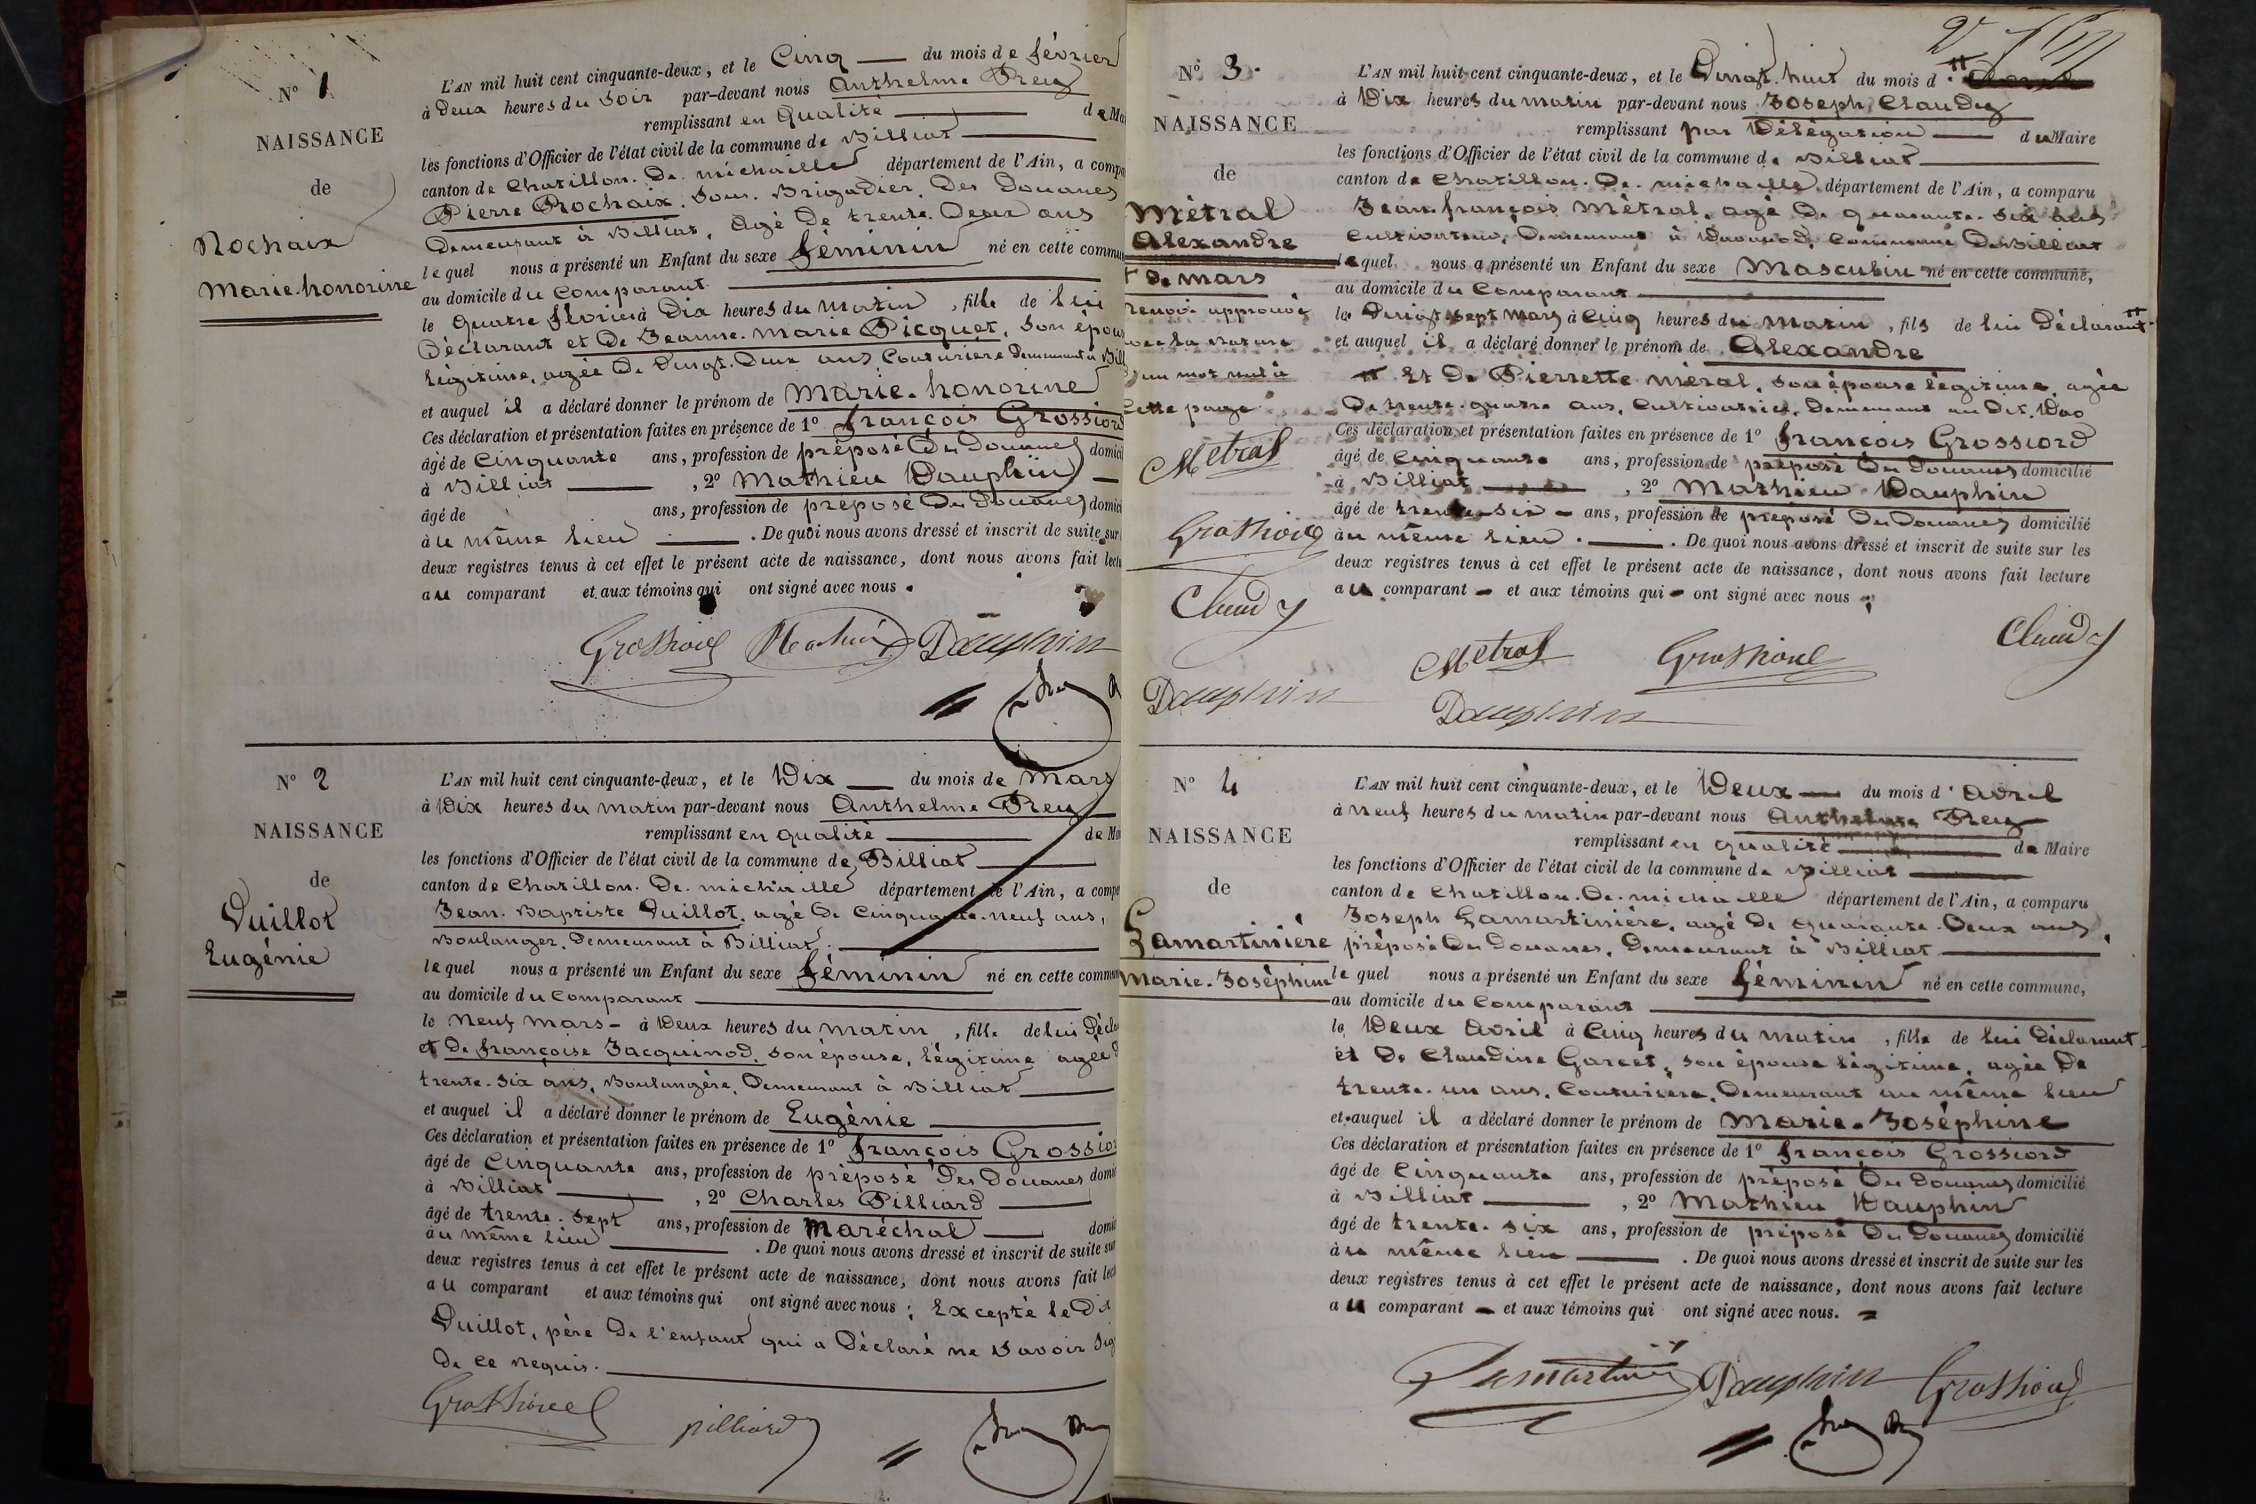 N° 1
NAISSANCE
de
Rochaix
Marie-honorine
L'AN mil huit cent cinquante-deux, et le Cinq du mois de février
à Deux heures du Soir par-devant nous Anthelme Prey
remplissant en Qualité de Ma
les fonctions d'Officier de l'état civil de la commune de Billiat
canton de Chatillon. De. michaille département de l'Ain, a compa
Pierre Rochaix. Sous. Brigadier. Des Douanes
Demeurant à Billiat, Agé De trente. Deux ans
lequel nous a présenté un Enfant du sexe féminin né en cette commun
au domicile du Comparant
le Quatre février à Dix heures du Matin, fille de lui
Déclarant et De Jeanne. Marie Picquet, Son épou
légitime, agée De Vingt. Deux ans, Couturière Demeurant à Bill
et auquel il a déclaré donner le prénom de Marie. honorine
Ces déclaration et présentation faites en présence de 1° françois Grossiord
âgé de Cinquante ans, profession de préposé Des Douanes domici
à Billiat, 2° Mathieu Dauphin
âgé de ans, profession de préposé Des Douanes domici
au même lieu. De quoi nous avons dressé et inscrit de suite sur
deux registres tenus à cet effet le présent acte de naissance, dont nous avons fait lectu
au comparant et aux témoins qui ont signé avec nous.
Grossiord Rochaix Dauphin
N° 2
NAISSANCE
de
Vuillot
Eugénie
L'AN mil huit cent cinquante-deux, et le Dix du mois de Mars
à Dix heures du matin par-devant nous Anthelme Prey
remplissant en qualité de Ma
les fonctions d'Officier de l'état civil de la commune de Billiat
canton de Chatillon. De. michaille département de l'Ain, a compa
Jean. Baptiste Vuillot. agé De Cinquante. neuf ans,
Boulanger. Demeurant à Billiat.
lequel nous a présenté un Enfant du sexe féminin né en cette commun
au domicile du Comparant
le Neuf Mars à Deux heures du matin, fille de lui Décla
et De françoise Jacquinod. son épouse, légitime agée D
trente. six ans, Boulangère, Demeurant à Billiat
et auquel il a déclaré donner le prénom de Eugénie
Ces déclaration et présentation faites en présence de 1° françois Grossior
âgé de Cinquante ans, profession de préposé Des Douanes domic
à Billiat, 2° Charles Pilliard
âgé de trente. Sept ans, profession de Maréchal domic
au même lieu. De quoi nous avons dressé et inscrit de suite sur
deux registres tenus à cet effet le présent acte de naissance, dont nous avons fait lect
au comparant et aux témoins qui ont signé avec nous; Excepté le Dit
Vuillot, père De l'enfant qui a Déclaré ne savoir Sig
De ce Requis.
Grossiord pilliard
N° 3.
NAISSANCE
de
Métral
Alexandre
de mars
Renvoi approuvé
un mot nul à
Cette page
Metral
Grossiord
Claudy
Dauphin
L'AN mil huit cent cinquante-deux, et le Vingt. huit du mois d
à Dix heures du matin par-devant nous Joseph, Claudy
remplissant par Délégation du Maire
les fonctions d'Officier de l'état civil de la commune de Billiat
canton de Chatillon. De. michaille département de l'Ain, a comparu
Jean. françois Métral, agé De quarante. six ans
Cultivateur, Demeurant à Commune De Billiat
lequel nous a présenté un Enfant du sexe Masculin né en cette commune,
au domicile du Comparant
le Vingt. sept Mars à Cinq heures du Matin, fils de lui Déclarant
et auquel il a déclaré donner le prénom de Alexandre
Et De Pierrette Méral, son épouse légitime, agée
De trente. quatre ans, Cultivatrice, Demeurant au Dit.
Ces déclaration et présentation faites en présence de 1° françois Grossiord
âgé de Cinquante ans, profession de préposé Des Douanes domicilié
à Billiat, 2° Mathieu Dauphin
âgé de trente. six ans, profession de préposé Des Douanes domicilié
au même lieu. De quoi nous avons dressé et inscrit de suite sur les
deux registres tenus à cet effet le présent acte de naissance, dont nous avons fait lecture
au comparant et aux témoins qui ont signé avec nous.
Metral Grossiord Claudy
Dauphin
N° 4
NAISSANCE
de
Lamartinière
Marie. Joséphine
L'AN mil huit cent cinquante-deux, et le Deux du mois d'Avril
à neuf heures du matin par-devant nous Anthelme Prey
remplissant en qualité de Maire
les fonctions d'Officier de l'état civil de la commune de Billiat
canton de Chatillon. De. michaille département de l'Ain, a comparu
Joseph Lamartinière, agé De quarante. Deux ans,
préposé Des Douanes, Demeurant à Billiat
lequel nous a présenté un Enfant du sexe féminin né en cette commune,
au domicile du Comparant
le Deux Avril à Cinq heures du matin, fille de lui Déclarant
et De Claudine Garcet, son épouse légitime, agée De
trente. un ans, Couturière, Demeurant au même lieu
et auquel il a déclaré donner le prénom de Marie. Joséphine
Ces déclaration et présentation faites en présence de 1° françois Grossiord
âgé de Cinquante ans, profession de préposé Des Douanes domicilié
à Billiat, 2° Mathieu Dauphin
âgé de trente. six ans, profession de préposé Des Douanes domicilié
au même lieu. De quoi nous avons dressé et inscrit de suite sur les
deux registres tenus à cet effet le présent acte de naissance, dont nous avons fait lecture
au comparant et aux témoins qui ont signé avec nous.
Lamartinière Dauphin Grossiord